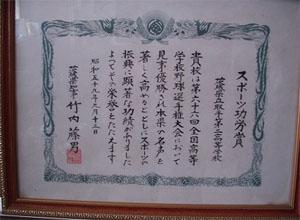 スポーツ功労賞
茨城県立取手第二高等学校
貴校は第六十六回全国高等
学校野球選手権大会において
見事優勝され本県の名声を
著しく高めるとともにスポーツの
振興に顕著な功績がありました
よってその栄誉をたたえます
昭和五十九年九月十三日
茨城県知事 竹内藤男